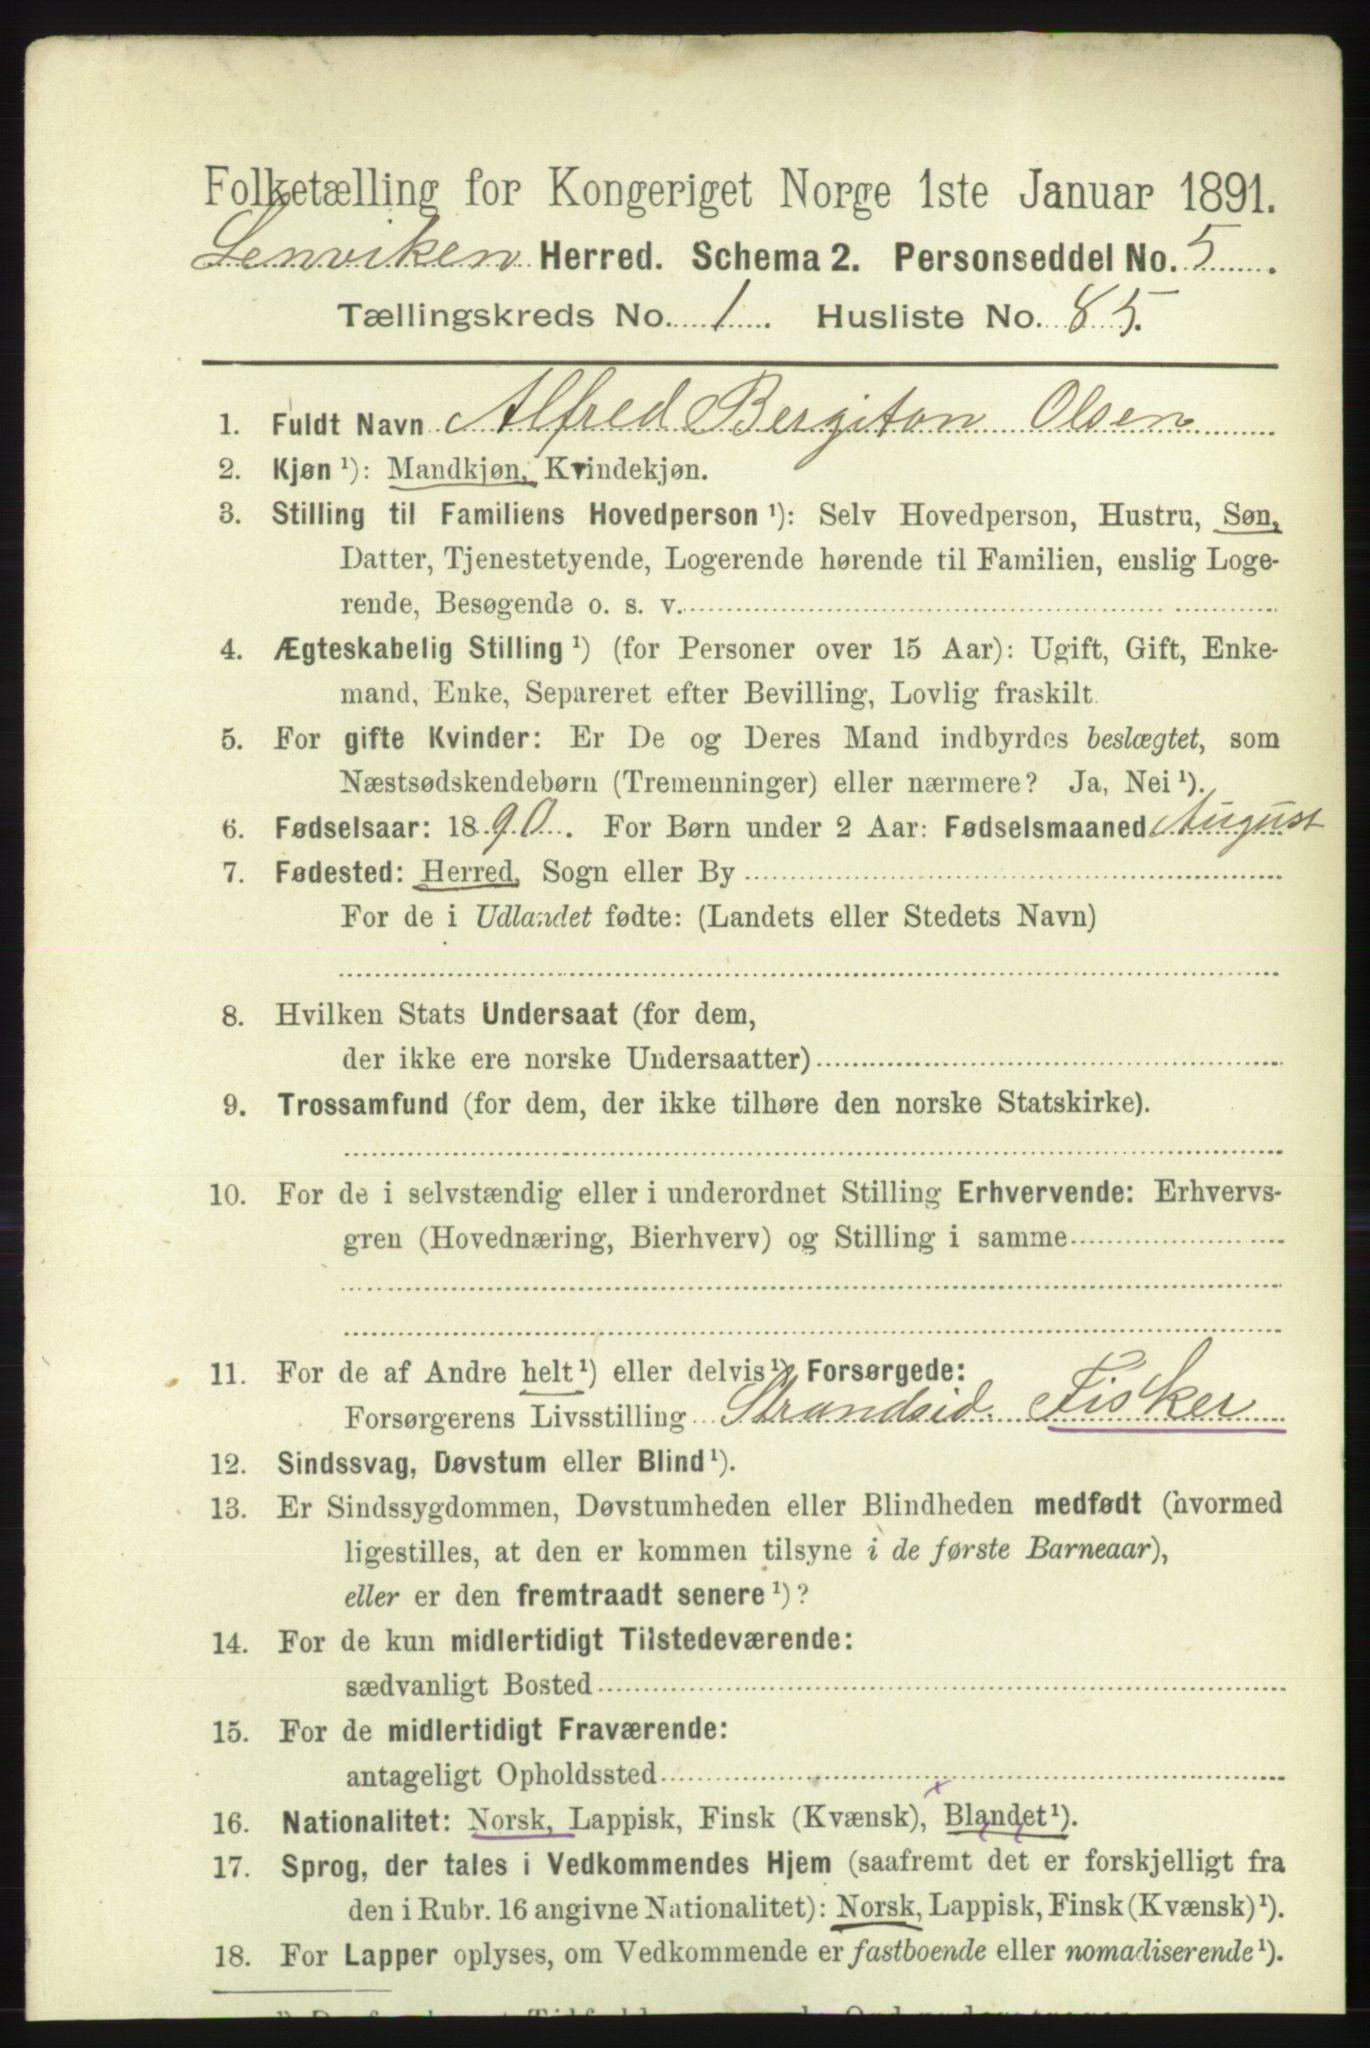 Folketælling for Kongeriget Norge 1ste Januar 1891.
Lenviken Herred. Schema 2. Personseddel No. 5.
Tællingskreds No. 1. Husliste No. 85.
1. Fuldt Navn Alfred Bergiton Olsen
2. Kjøn ¹): Mandkjøn, Kvindekjøn.
3. Stilling til Familiens Hovedperson ¹): Selv Hovedperson, Hustru, Søn,
Datter, Tjenestetyende, Logerende hørende til Familien, enslig Loge-
rende, Besøgende o. s. v.
4. Ægteskabelig Stilling ¹) (for Personer over 15 Aar): Ugift, Gift, Enke-
mand, Enke, Separeret efter Bevilling, Lovlig fraskilt.
5. For gifte Kvinder: Er De og Deres Mand indbyrdes beslægtet, som
Næstsødskendebørn (Tremenninger) eller nærmere? Ja, Nei ¹).
6. Fødselsaar: 1890. For Børn under 2 Aar: Fødselsmaaned August
7. Fødested: Herred, Sogn eller By
For de i Udlandet fødte: (Landets eller Stedets Navn)
8. Hvilken Stats Undersaat (for dem,
der ikke ere norske Undersaatter)
9. Trossamfund (for dem, der ikke tilhøre den norske Statskirke).
10. For de i selvstændig eller i underordnet Stilling Erhvervende: Erhvervs-
gren (Hovednæring, Bierhverv) og Stilling i samme
11. For de af Andre helt ¹) eller delvis ¹) Forsørgede:
Forsørgerens Livsstilling Strandsid. Fisker
12. Sindssvag, Døvstum eller Blind ¹).
13. Er Sindssygdommen, Døvstumheden eller Blindheden medfødt (hvormed
ligestilles, at den er kommen tilsyne i de første Barneaar),
eller er den fremtraadt senere ¹)?
14. For de kun midlertidigt Tilstedeværende:
sædvanligt Bosted
15. For de midlertidigt Fraværende:
antageligt Opholdssted
16. Nationalitet: Norsk, Lappisk, Finsk (Kvænsk), x Blandet ¹).
17. Sprog, der tales i Vedkommendes Hjem (saafremt det er forskjelligt fra
den i Rubr. 16 angivne Nationalitet): Norsk, Lappisk, Finsk (Kvænsk) ¹).
18. For Lapper oplyses, om Vedkommende er fastboende eller nomadiserende ¹).